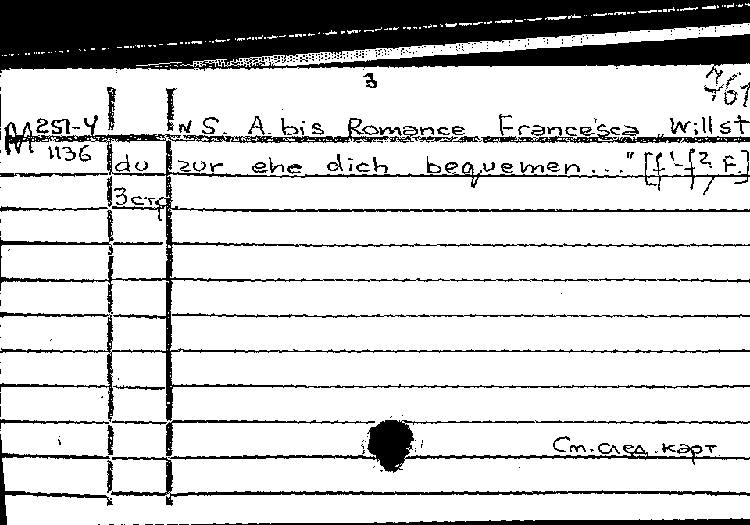 3
761
М 251-4 N S. A. bis Romance Francesca „Willst
1136 du zur ehe dich bequemen..." [f¹-f², F.]
3 стр
См. след. карт